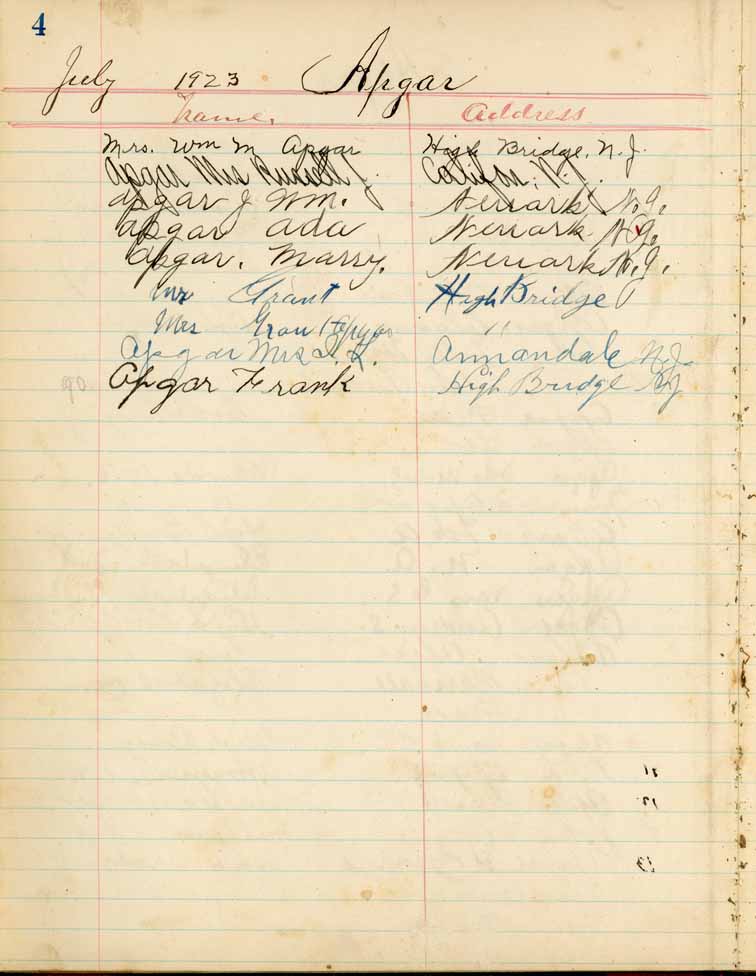 4
July 1923 Apgar
Name. Address
Mrs. Wm M Apgar High Bridge, N.J.
Apgar Mrs Russell J. Califon, N.J.
Apgar J Wm. Newark N.J.
Apgar Ada Newark N.J.
Apgar. Marry. Newark N.J.
Mr Grant High Bridge
Mrs Grant Apgar "
Apgar Mrs Annandale N.J.
90 Apgar Frank High Bridge NJ
11
12
13